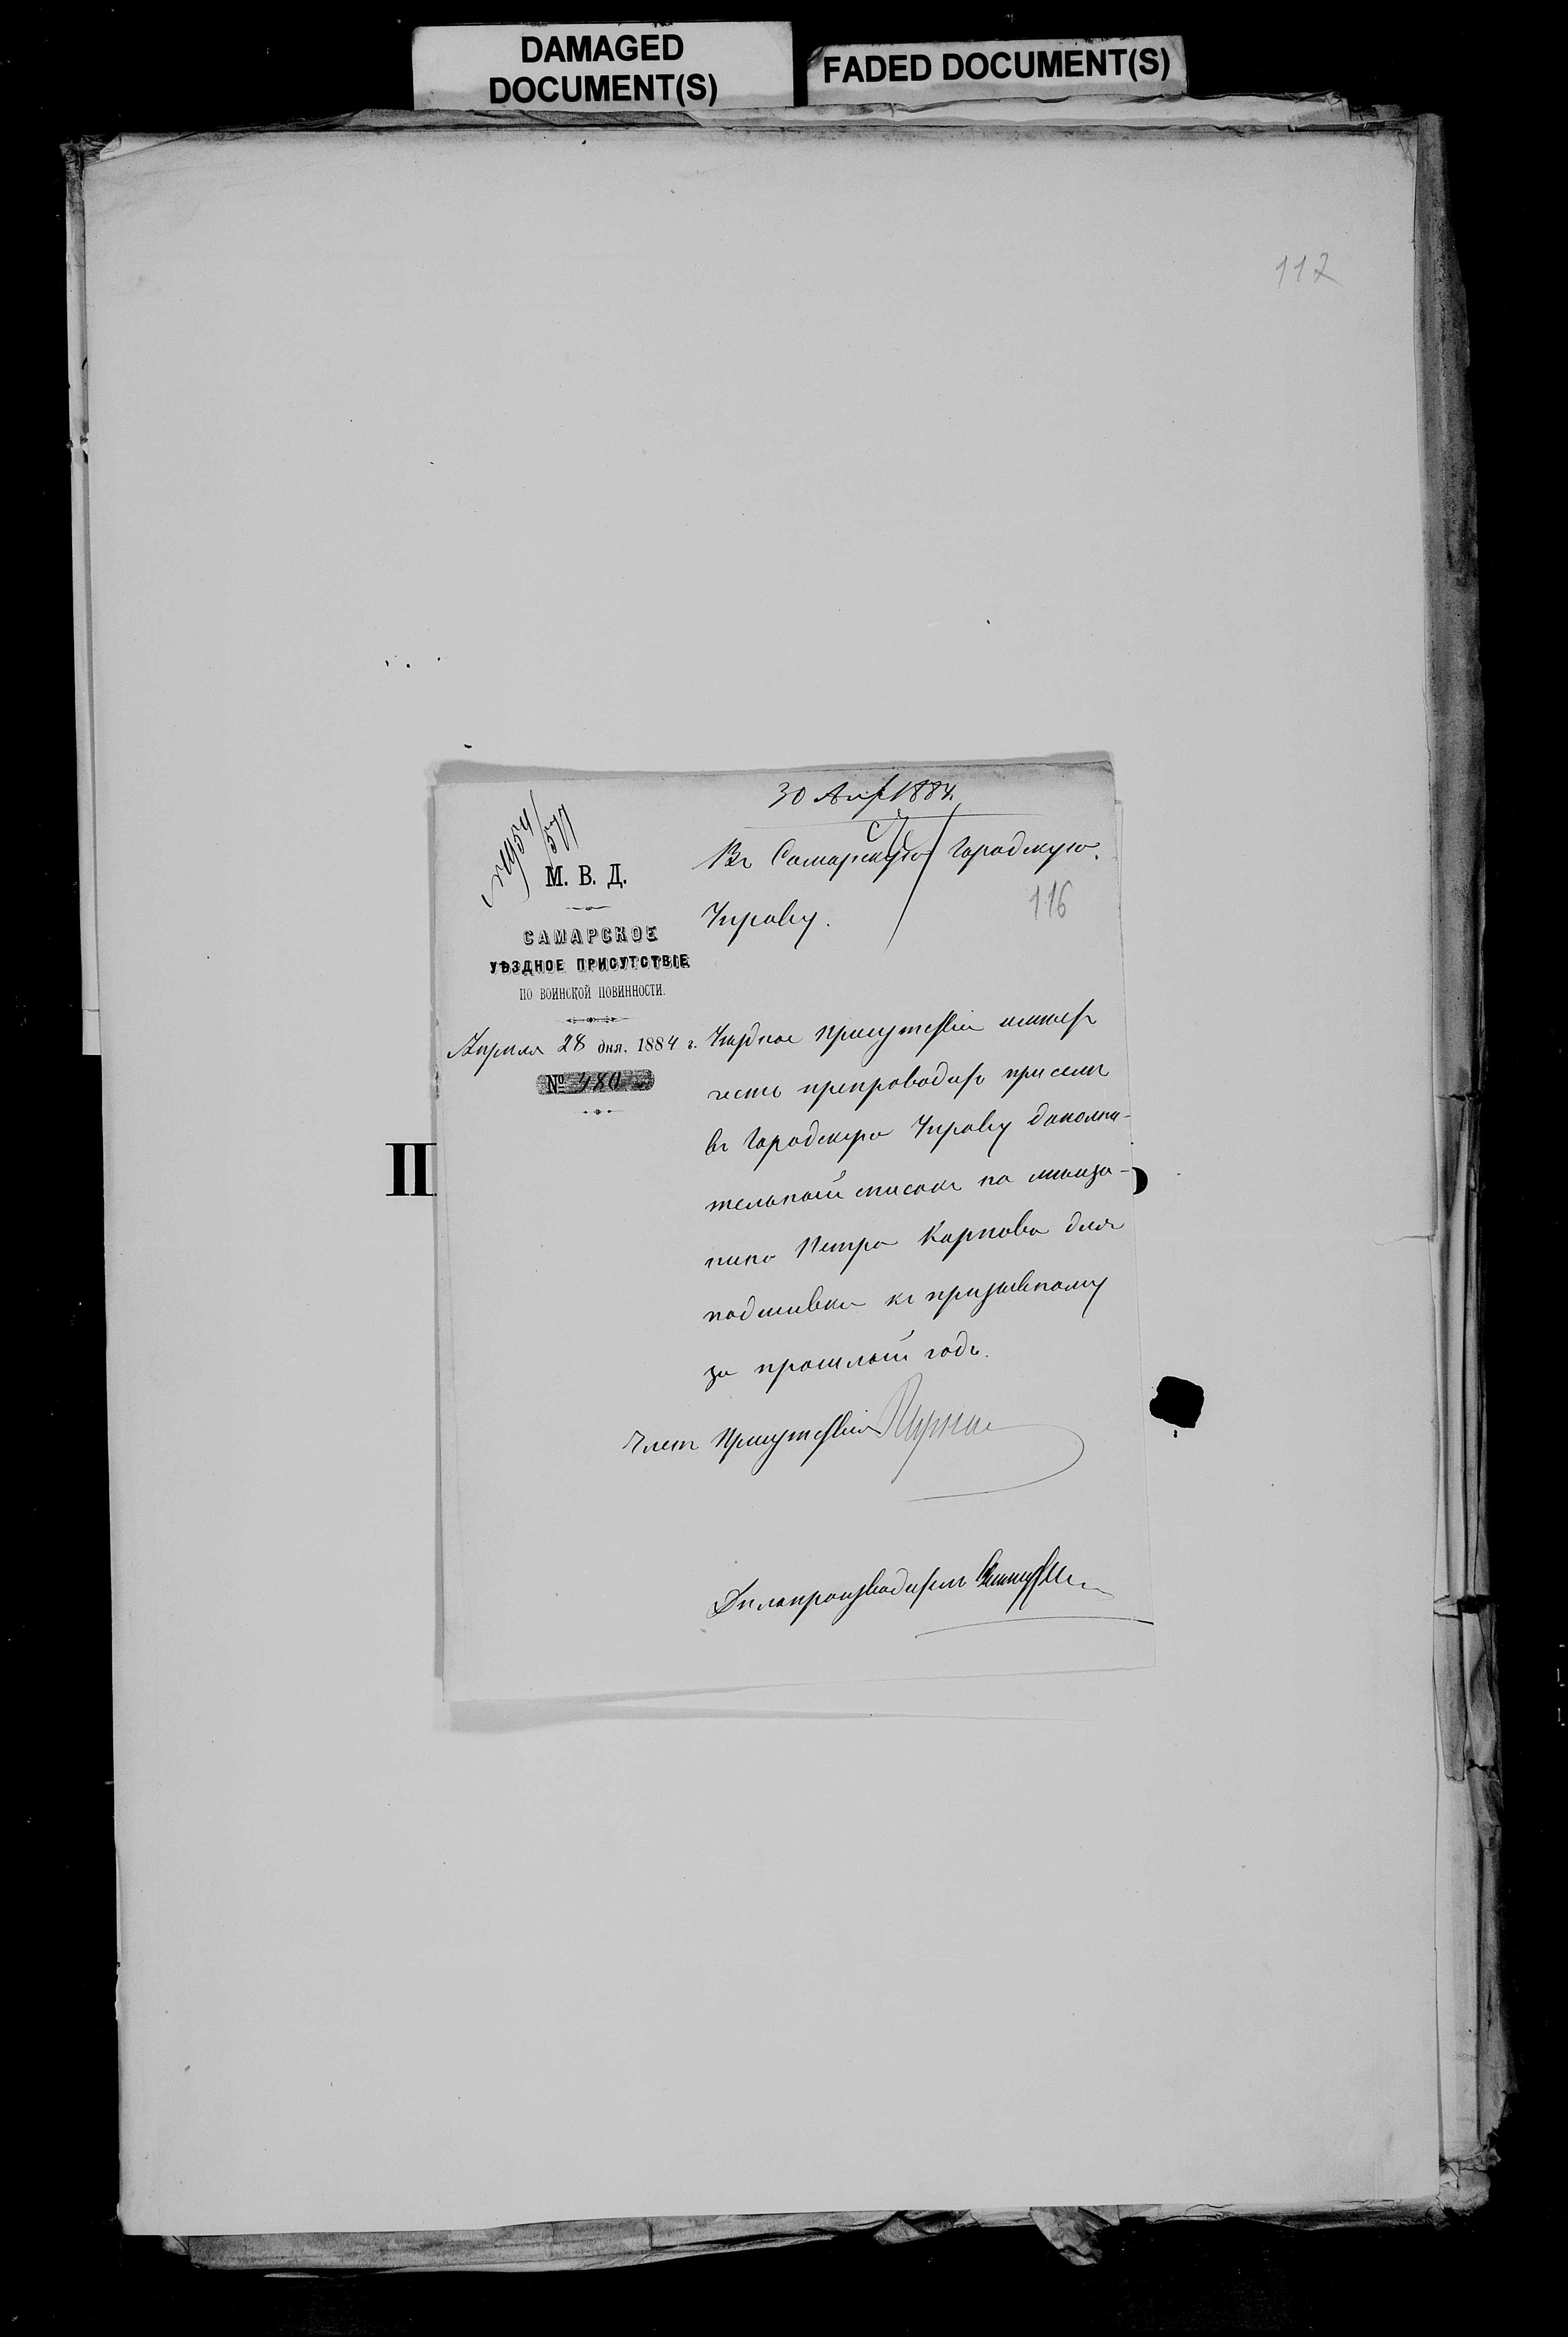 DAMAGED
DOCUMENT(S)
FADED DOCUMENT(S)
117
30 Апр 1884.
№ 1954/577
М. В. Д.
САМАРСКОЕ
УѢЗДНОЕ ПРИСУТСТВІЕ
ПО ВОИНСКОЙ ПОВИННОСТИ.
Апрѣля 28 дня. 1884 г.
№ 480
Въ Самарскую Городскую
Управу.
116
Уѣздное Присутствіе имѣетъ
честь препроводить при семъ
въ Городскую Управу дополни-
тельный списокъ на мѣща-
нина Петра Карпова для
подшивки къ призывному
за прошлый годъ.
Членъ Присутствія
Дѣлопроизводитель
II